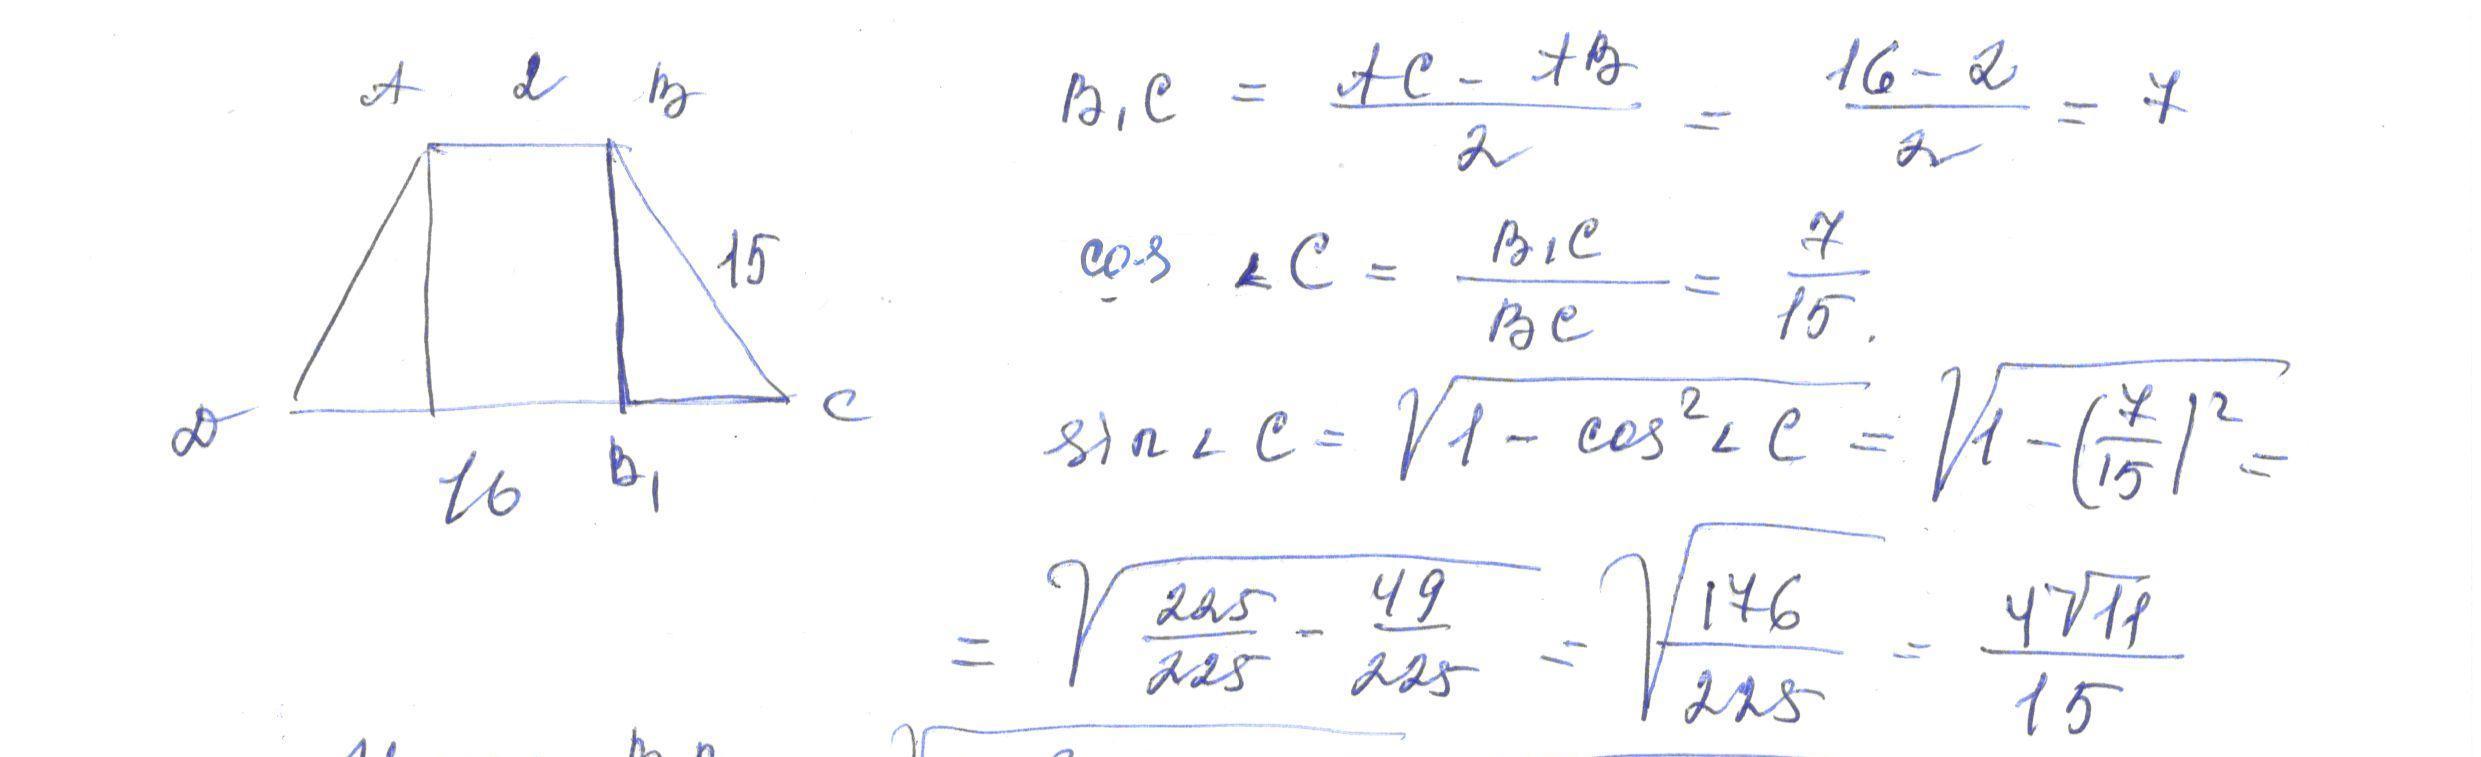 A 2 B
15
D C
16 B₁
B₁C = (AC - AB)/2 = (16 - 2)/2 = 7
cos ∠C = B₁C/BC = 7/15.
sin ∠ C = √(1 - cos² ∠ C) = √(1 - (7/15)²) =
= √(225/225 - 49/225) = √(176/225) = 4√11/15